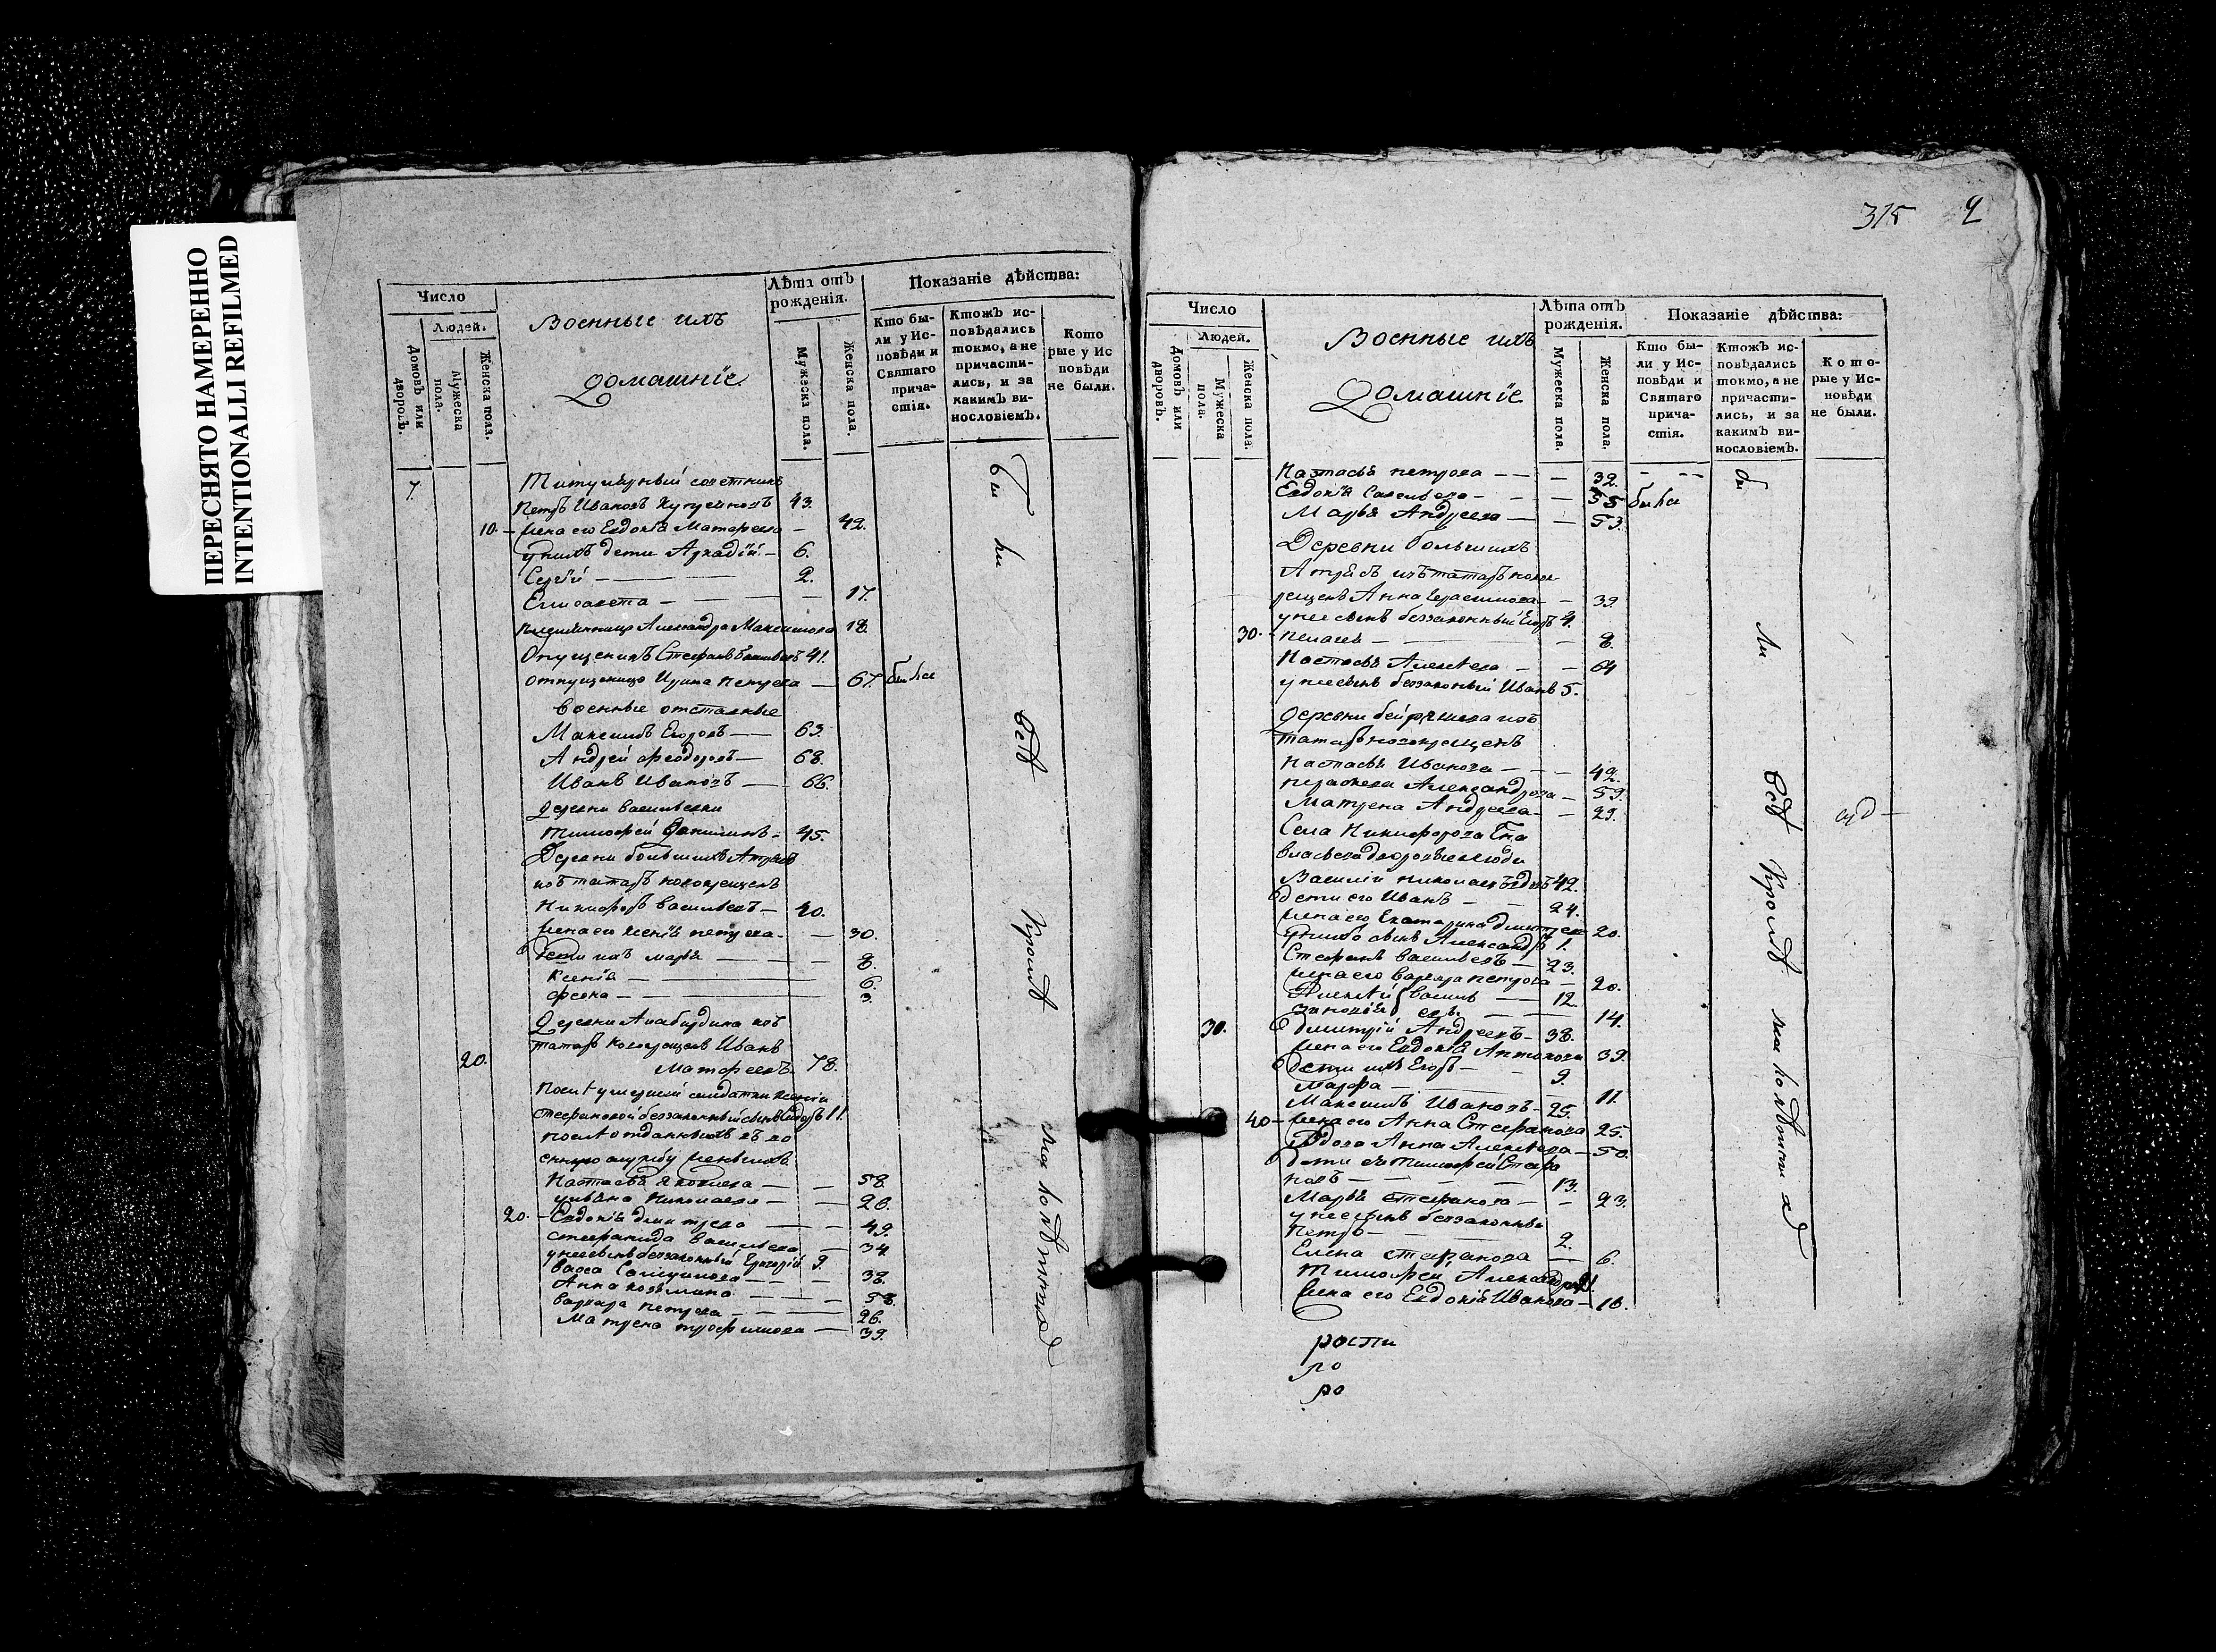 ПЕРЕСНЯТО НАМЕРЕННО
INTENTIONALLI REFILMED
Число
Людей.
Домовъ или дворовъ.
Мужеска пола.
Женска пола.
Военные ихъ
домашніе
Лѣта отъ рожденія.
Мужеска пола.
Женска пола.
Показаніе дѣйства:
Кто бы-
ли у Ис-
повѣди и
Святаго
прича-
стія.
Ктожъ ис-
повѣдались
токмо, а не
причасти-
лись, и за
какимъ ви-
нословіемъ.
Кото
рые у Ис
повѣди
не были.
7. Титулярный советникъ
Петръ Ивановъ 43.
10. жена его Евдокѣа Матфеева — 42.
у нихъ дети Аркадій — 6.
Сергій — 2.
Елисавета — 17.
Александра Максимова 18.
Стефанъ 41.
отпущеница Ирина Петрова — 67.
военные отставные
Максимъ Егоровъ — 63.
Андрей Феодоровъ — 68.
Иванъ Ивановъ — 66.
Деревни Васильевки
Тимофей Даниловъ — 45.
Деревни большихъ Атрясъ
изъ татаръ новокрещенъ
Никифоръ Васильевъ — 40.
жена его Ксенія Петрова — 30.
дети ихъ Марья — 8.
Ксенія — 6.
Фекла — 3.
Деревни изъ
татаръ новокрещенъ Иванъ
20. Матфеевъ 78.
После умершей солдатки Ксеніи
Стефановой беззаконный сынъ 11.
после отданныхъ въ во
енную службу жены ихъ
Настасья Яковлева — 58
Ульяна Николаева — 26.
20. Евдокія Дмитрева — 49.
Стефанида Васильева — 34
у нее сынъ беззаконный Григорій 9.
Васса — 38.
Анна Козьмина — 58.
Варвара Петрова — 26.
Матрена Трофимова — 39.
бы
ли
все
кроме
малолетныхъ
315 9
Число
Людей.
Домовъ или дворовъ.
Мужеска пола.
Женска пола.
Военные ихъ
Домашніе
Лѣта отъ рожденія.
Мужеска пола.
Женска пола.
Показаніе дѣйства:
Кто бы-
ли у Ис-
повѣди и
Святаго
прича-
стія.
Ктожъ ис-
повѣдались
токмо, а не
причасти-
лись, и за
какимъ ви-
нословіемъ.
Кото-
рые у Ис-
повѣди
не были.
Настасья Петрова — 32.
Евдокія Савельева — 55
Марья Андреева — 53.
Деревни большихъ
Атрясъ изъ татаръ новок
рещенъ Анна Герасимова — 39.
у нее сынъ беззаконный Егоръ 4.
30. Пелагея — 8.
Настасья Алексеева — 64
у нее сынъ беззаконный Иванъ 5.
деревни изъ
татаръ новокрещенъ
Настасья Иванова — 42.
Александрова — 59.
Матрена Андреева — 29.
Села Никифорова Гна
дворовые люди
Василій Николаевъ вдовъ 42.
дети его Иванъ — 24.
жена его Екатерина Дмитрева 20.
у нихъ сынъ Александръ 1.
Стефанъ Васильевъ — 23.
жена его Варвара Петрова — 20.
Алексей Василь — 12.
Зиновія евы — 14.
30. Дмитрій Андреевъ — 38.
жена его Евдокія Антонова 39.
дети ихъ Егоръ — 9.
Марфа — 11.
Максимъ Ивановъ — 25.
40 жена его Анна Стефанова 25.
Вдова Анна Алексеева — 50.
дети ея Тимофей Стефа
новъ — 13.
Марья Стефанова — 23.
у нее сынъ беззаконны
Петръ — 2.
Елена Стефанова — 6.
Тимофей Александровъ 21.
жена его Евдокія Иванова — 18.
бы
ли
все
кроме
малолетныхъ
рости
ро
ро